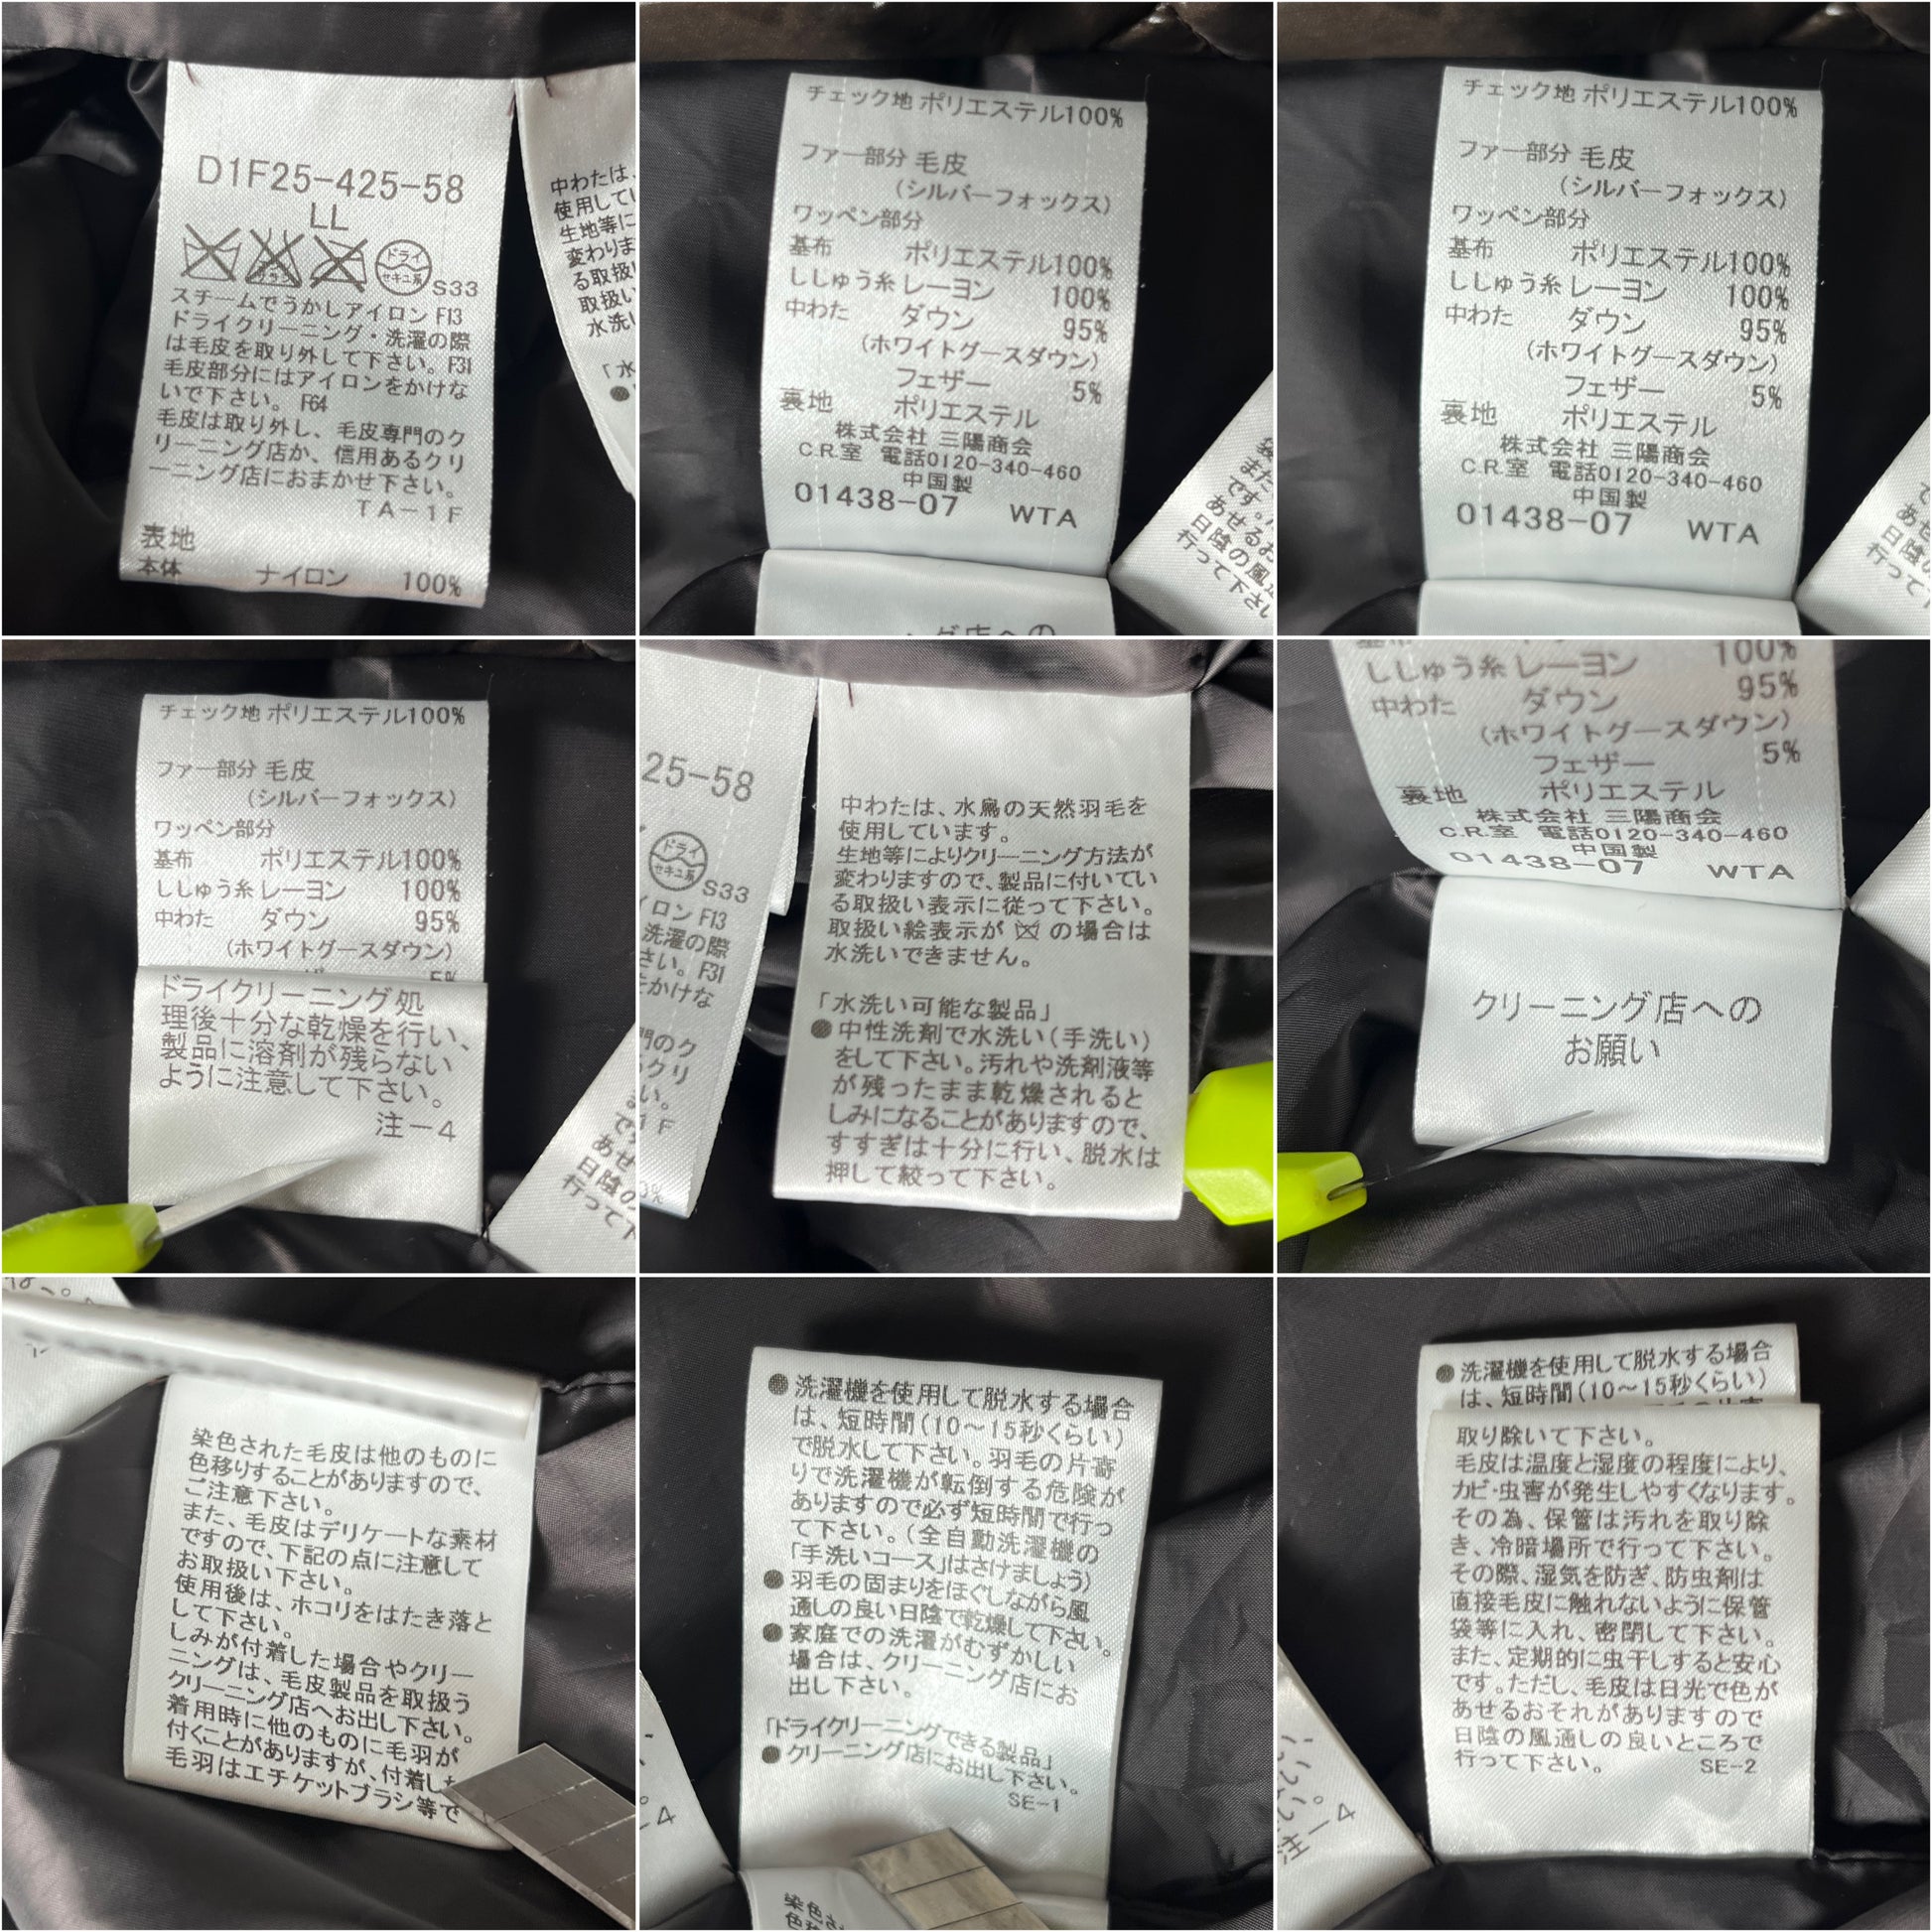 D1F25-425-58
LL
ドライ
セキユ系
S33
スチームでうかしアイロン F13
ドライクリーニング・洗濯の際
は毛皮を取り外して下さい。F31
毛皮部分にはアイロンをかけな
いで下さい。 F64
毛皮は取り外し、毛皮専門のク
リーニング店か、信用あるクリ
ーニング店におまかせ下さい。
TA-1F
表地
本体 ナイロン 100%
中わたは、
使用してい
生地等に
変わりま
る取扱い
取扱い
水洗い
「水
チェック地 ポリエステル100%
ファー部分 毛皮
(シルバーフォックス)
ワッペン部分
基布 ポリエステル100%
ししゅう糸 レーヨン 100%
中わた ダウン 95%
(ホワイトグースダウン)
フェザー 5%
裏地 ポリエステル
株式会社 三陽商会
C.R.室 電話0120-340-460
中国製
01438-07 WTA
また
です。
あせるお
日陰の風
行って下さい
チェック地 ポリエステル100%
ファー部分 毛皮
(シルバーフォックス)
ワッペン部分
基布 ポリエステル100%
ししゅう糸 レーヨン 100%
中わた ダウン 95%
(ホワイトグースダウン)
フェザー 5%
裏地 ポリエステル
株式会社 三陽商会
C.R.室 電話0120-340-460
中国製
01438-07 WTA
あせる
日陰の
行って下
チェック地 ポリエステル100%
ファー部分 毛皮
(シルバーフォックス)
ワッペン部分
基布 ポリエステル100%
ししゅう糸 レーヨン 100%
中わた ダウン 95%
(ホワイトグースダウン)
5%
ドライクリーニング処
理後十分な乾燥を行い、
製品に溶剤が残らない
ように注意して下さい。
注-4
あせ
日陰の
行って下
25-58
ドライ
セキユ系
S33
イロン F13
洗濯の際
さい。F31
をかけな
門のク
クリ
い。
1F
0%
中わたは、水鳥の天然羽毛を
使用しています。
生地等によりクリーニング方法が
変わりますので、製品に付いてい
る取扱い表示に従って下さい。
取扱い絵表示が の場合は
水洗いできません。
「水洗い可能な製品」
●中性洗剤で水洗い(手洗い)
をして下さい。汚れや洗剤液等
が残ったまま乾燥されると
しみになることがありますので、
すすぎは十分に行い、脱水は
押して絞って下さい。
100%
ししゅう糸 レーヨン 
中わた ダウン 95%
(ホワイトグースダウン)
フェザー 5%
裏地 ポリエステル
株式会社 三陽商会
C.R.室 電話0120-340-460
中国製
01438-07 WTA
クリーニング店への
お願い
染色された毛皮は他のものに
色移りすることがありますので、
ご注意下さい。
また、毛皮はデリケートな素材
ですので、下記の点に注意して
お取扱い下さい。
使用後は、ホコリをはたき落と
して下さい。
しみが付着した場合やクリー
ニングは、毛皮製品を取扱う
クリーニング店へお出し下さい。
着用時に他のものに毛羽が
付くことがありますが、付着した
毛羽はエチケットブラシ等で
●洗濯機を使用して脱水する場合
は、短時間(10〜15秒くらい)
で脱水して下さい。羽毛の片寄
りで洗濯機が転倒する危険が
ありますので必ず短時間で行っ
て下さい。(全自動洗濯機の
「手洗いコース」はさけましょう)
●羽毛の固まりをほぐしながら風
通しの良い日陰で乾燥して下さい。
●家庭での洗濯がむずかしい
場合は、クリーニング店にお
出し下さい。
「ドライクリーニングできる製品」
●クリーニング店にお出し下さい。
SE-1
-4
●洗濯機を使用して脱水する場合
は、短時間(10〜15秒くらい)
取り除いて下さい。
毛皮は温度と湿度の程度により、
カビ・虫害が発生しやすくなります。
その為、保管は汚れを取り除
き、冷暗場所で行って下さい。
その際、湿気を防ぎ、防虫剤は
直接毛皮に触れないように保管
袋等に入れ、密閉して下さい。
また、定期的に虫干しすると安心
です。ただし、毛皮は日光で色が
あせるおそれがありますので
日陰の風通しの良いところで
行って下さい。 SE-2
注-4